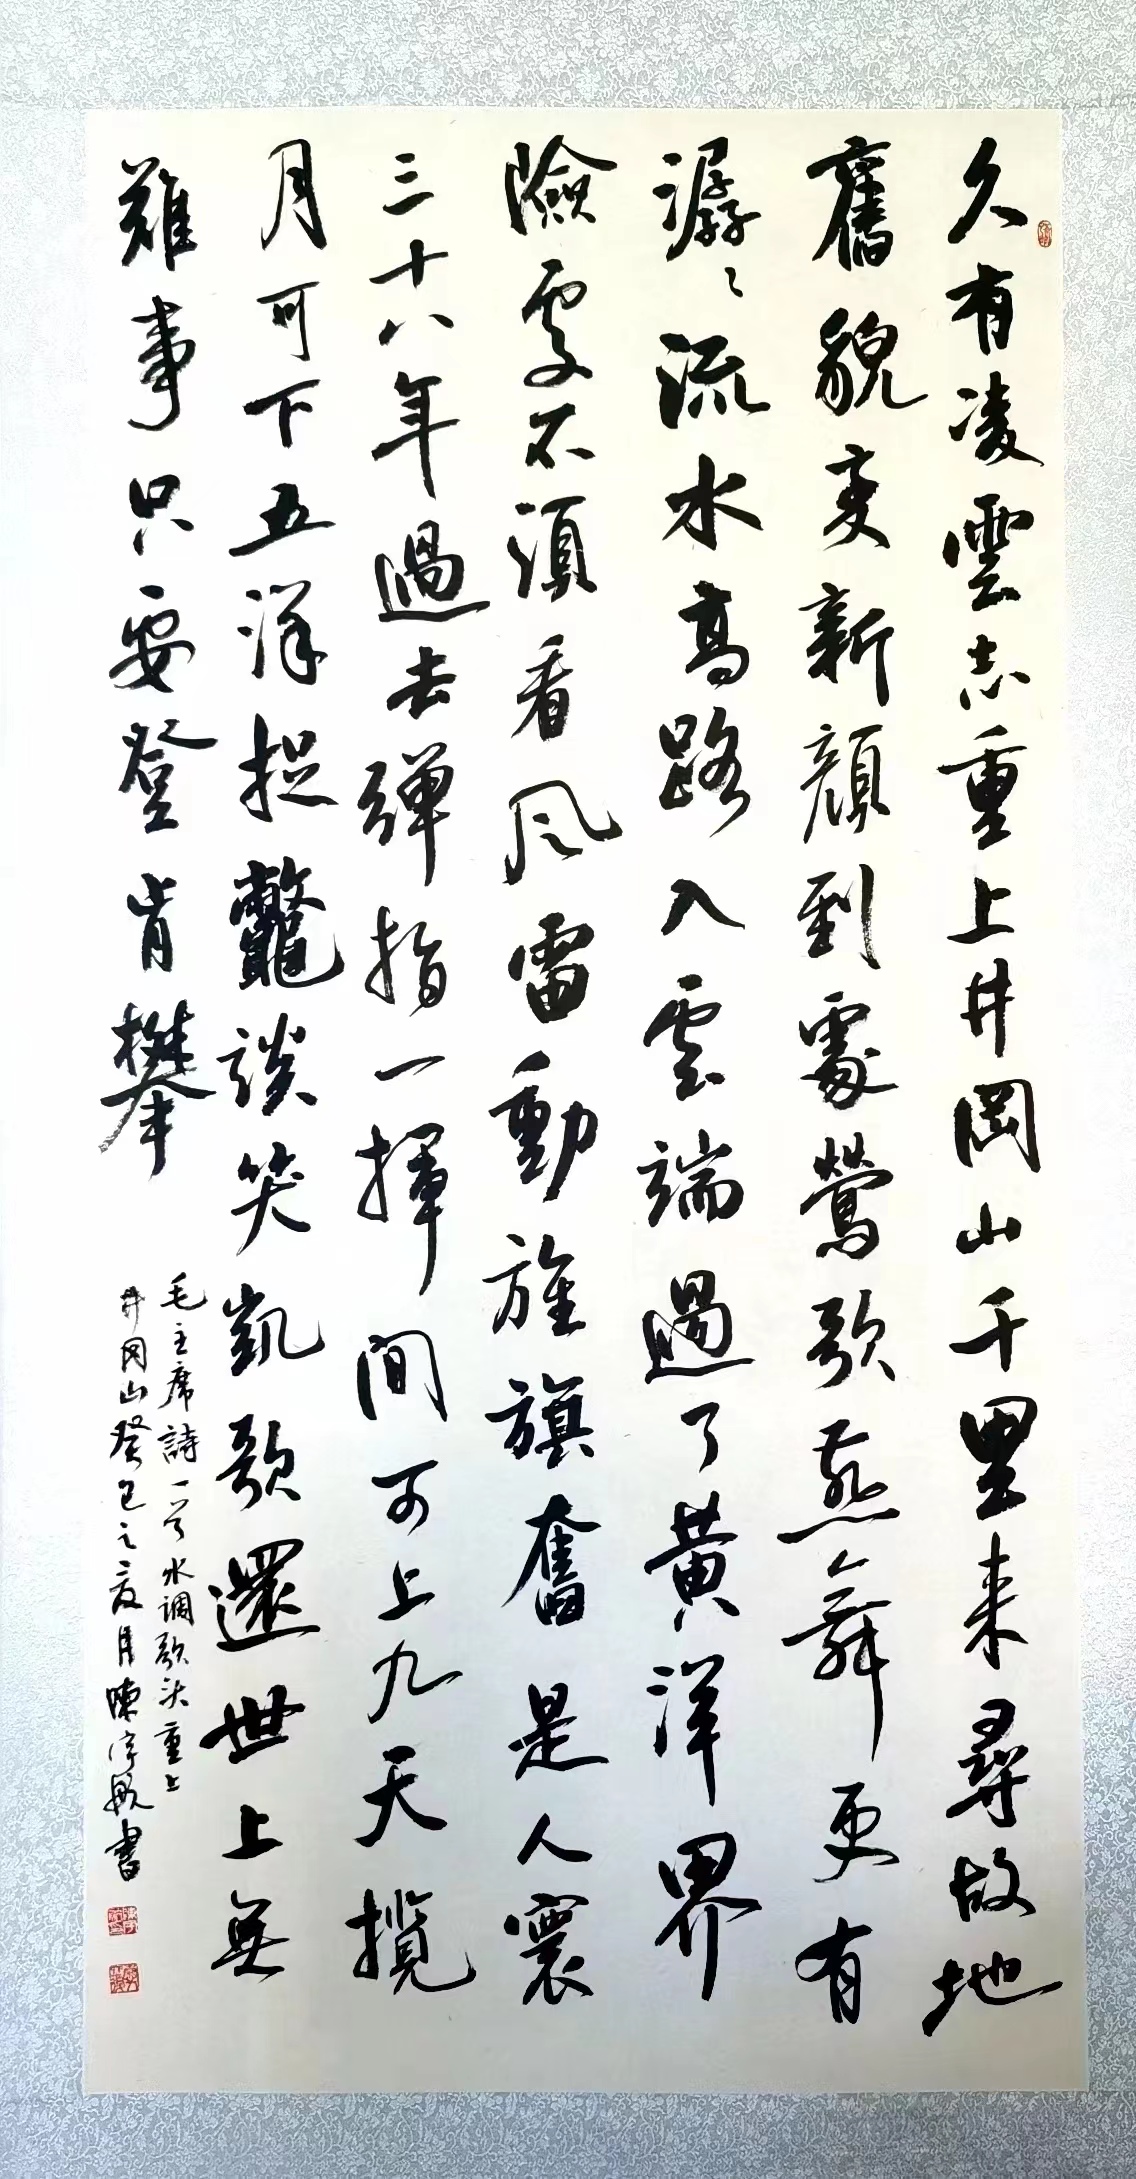 久有凌雲志重上井岡山千里来尋故地
舊貌变新顔到處鶯歌燕舞更有
潺潺流水高路入雲端過了黄洋界
險處不須看风雷動旌旗奮是人寰
三十八年過去弹指一揮间可上九天揽
月可下五洋捉鱉談笑凱歌還世上無
难事只要登肯攀
毛主席詩一首水调歌头重上
井冈山癸巳之夏月陳書